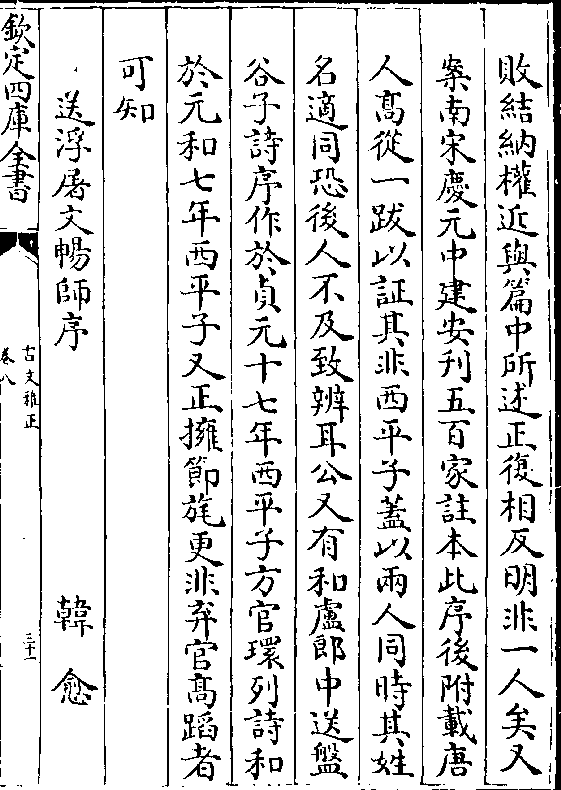 敗結納權近與篇中所述正復相反明非一人矣又
案南宋慶元中建安刋五百家註本此序後附載唐
人髙從一跋以証其非西平子蓋以兩人同時其姓
名適同恐後人不及致辨耳公又有和盧郎中送盤
谷子詩序作於貞元十七年西平子方官環列詩和
於元和七年西平子又正擁節旄更非弃官髙蹈者
可知
送浮屠文暢師序 韓愈
欽定四庫全書
古文雅正
卷八
三十一